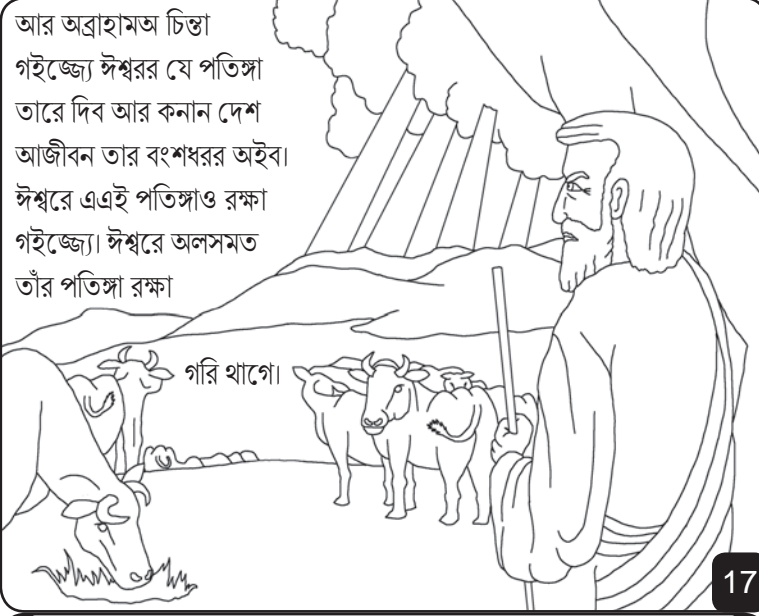 আর অব্রাহামঅ চিন্তা
গইজ্জ্যে ঈশ্বরর যে পতিঙ্গা
তারে দিব আর কনান দেশ
আজীবন তার বংশধরর অইব।
ঈশ্বরে এএই পতিঙ্গাও রক্ষা
গইজ্জ্যে। ঈশ্বরে অলসমত
তাঁর পতিঙ্গা রক্ষা
গরি থাগে।
17